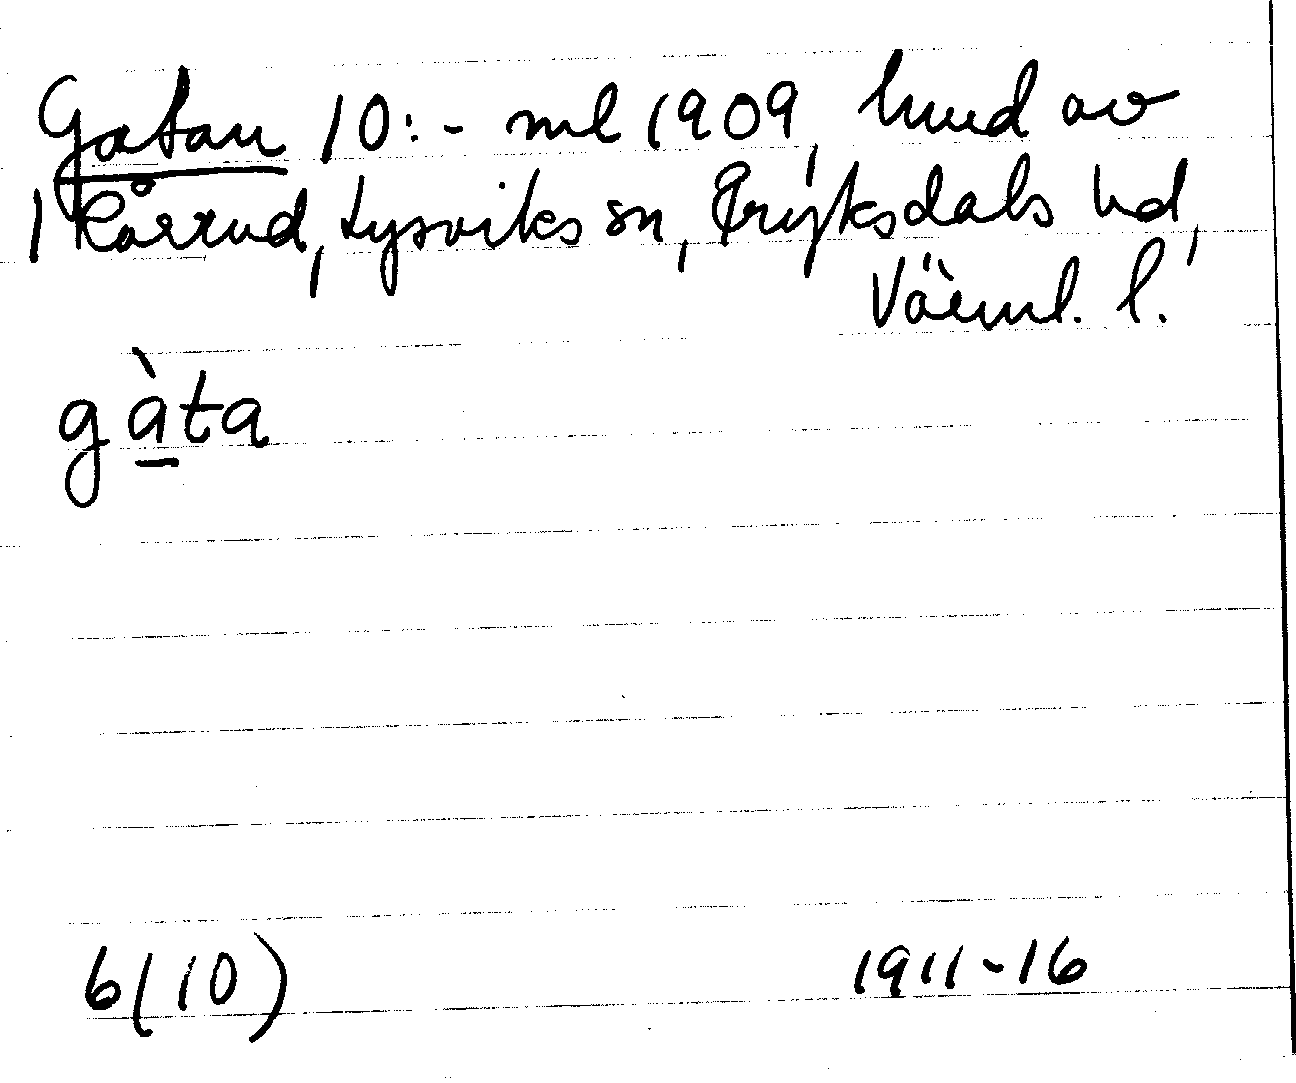 Gatan 10:- ml 1909, hmd av
1 Kårrud, Lysviks sn, Fryksdals hd,
Värml. l.
gàta
6(10) 1911-16